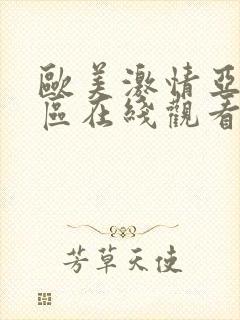 歐美激情亞
區在綫觀看
芳草天使